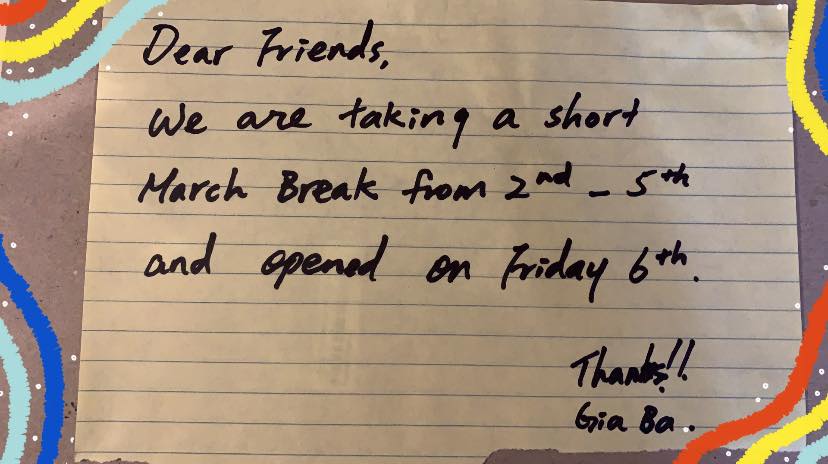 Dear Friends,
We are taking a short
March Break from 2nd - 5th
and opened on Friday 6th.
Thanks!!
Gia Ba.